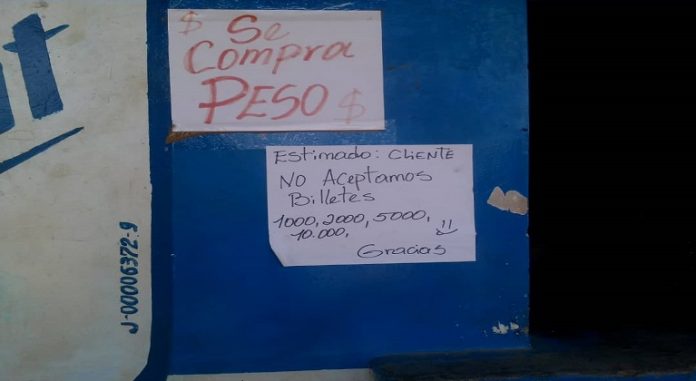 $ Se
Compra
PESO $
Estimado: Cliente
NO Aceptamos
Billetes
1000, 2000, 5000,
10.000,
Gracias
J-00006372-9